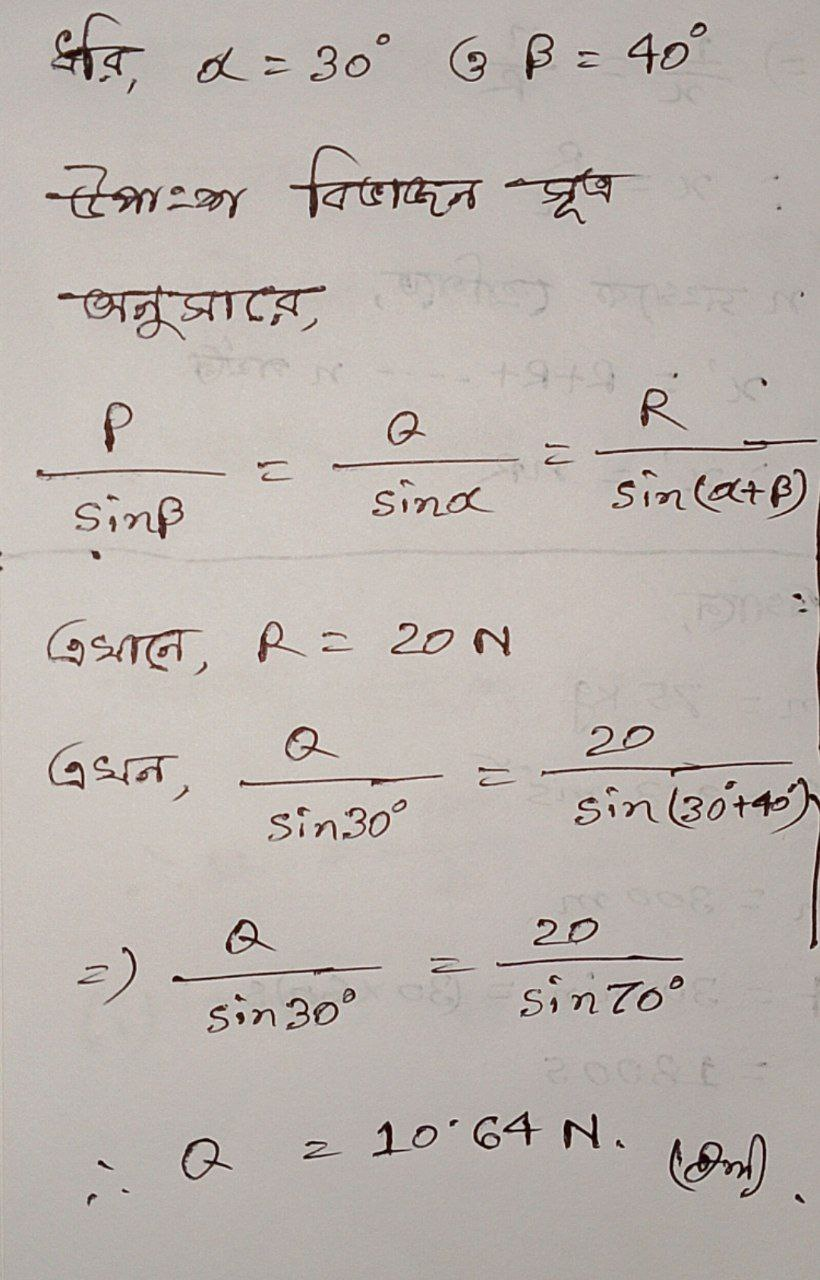 ধরি, α = 30° ও β = 40°
উপাংশ বিভাজন সূত্র
অনুসারে,
P/sinβ = Q/sinα = R/sin(α+β)
এখানে, R = 20 N
এখন, Q/sin30° = 20/sin(30°+40°)
=) Q/sin30° = 20/sin70°
∴ Q = 10·64 N. (Ans).